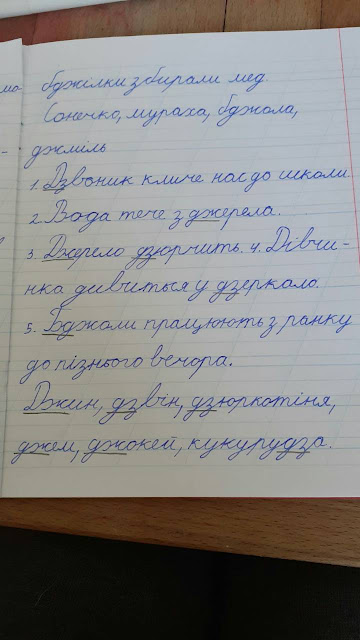 бджілки збирали мед.
Сонечко, мураха, бджола,
джміль
1. Дзвоник кличе нас до школи
2. Вода тече з джерела.
3. Джерело дзюрчить. 4. Дівчи-
нка дивиться у дзеркало.
5. Бджоли працюють з ранку
до пізнього вечора.
Джин, дзвін, дзюркотіня,
джем, джокей, кукурудза.